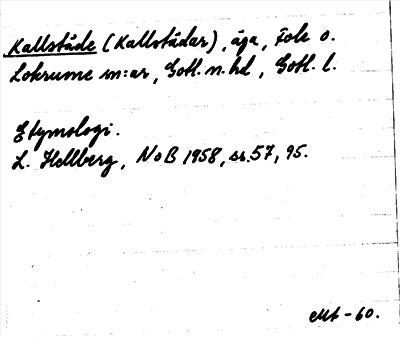 Kallståde (Kallstådar), äga, Fole o.
Lokrume sn:ar, Gotl. n. hd, Gotl. l.
Etymologi.
L. Hellberg, NoB 1958, ss. 57, 95.
-60.